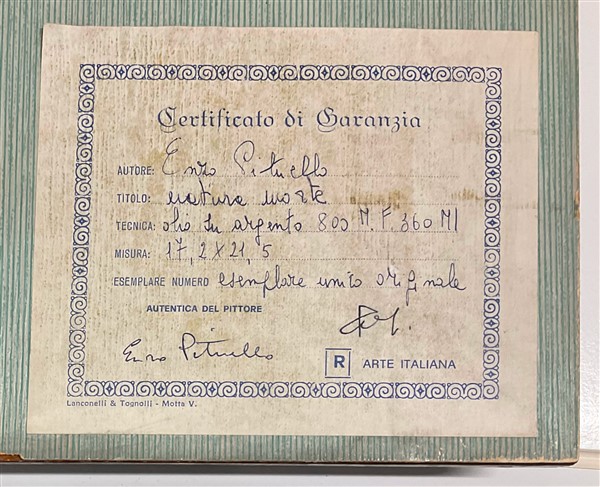 Certificato di Garanzia
AUTORE: Enzo Pituello
TITOLO: natura morte
TECNICA: olio su argento 800 M.F. 360 Ml
MISURA: 17,2 X 21,5
ESEMPLARE NUMERO esemplare unico originale
AUTENTICA DEL PITTORE
Enzo Pituello
R ARTE ITALIANA
Lanconelli & Tognolli - Motta V.